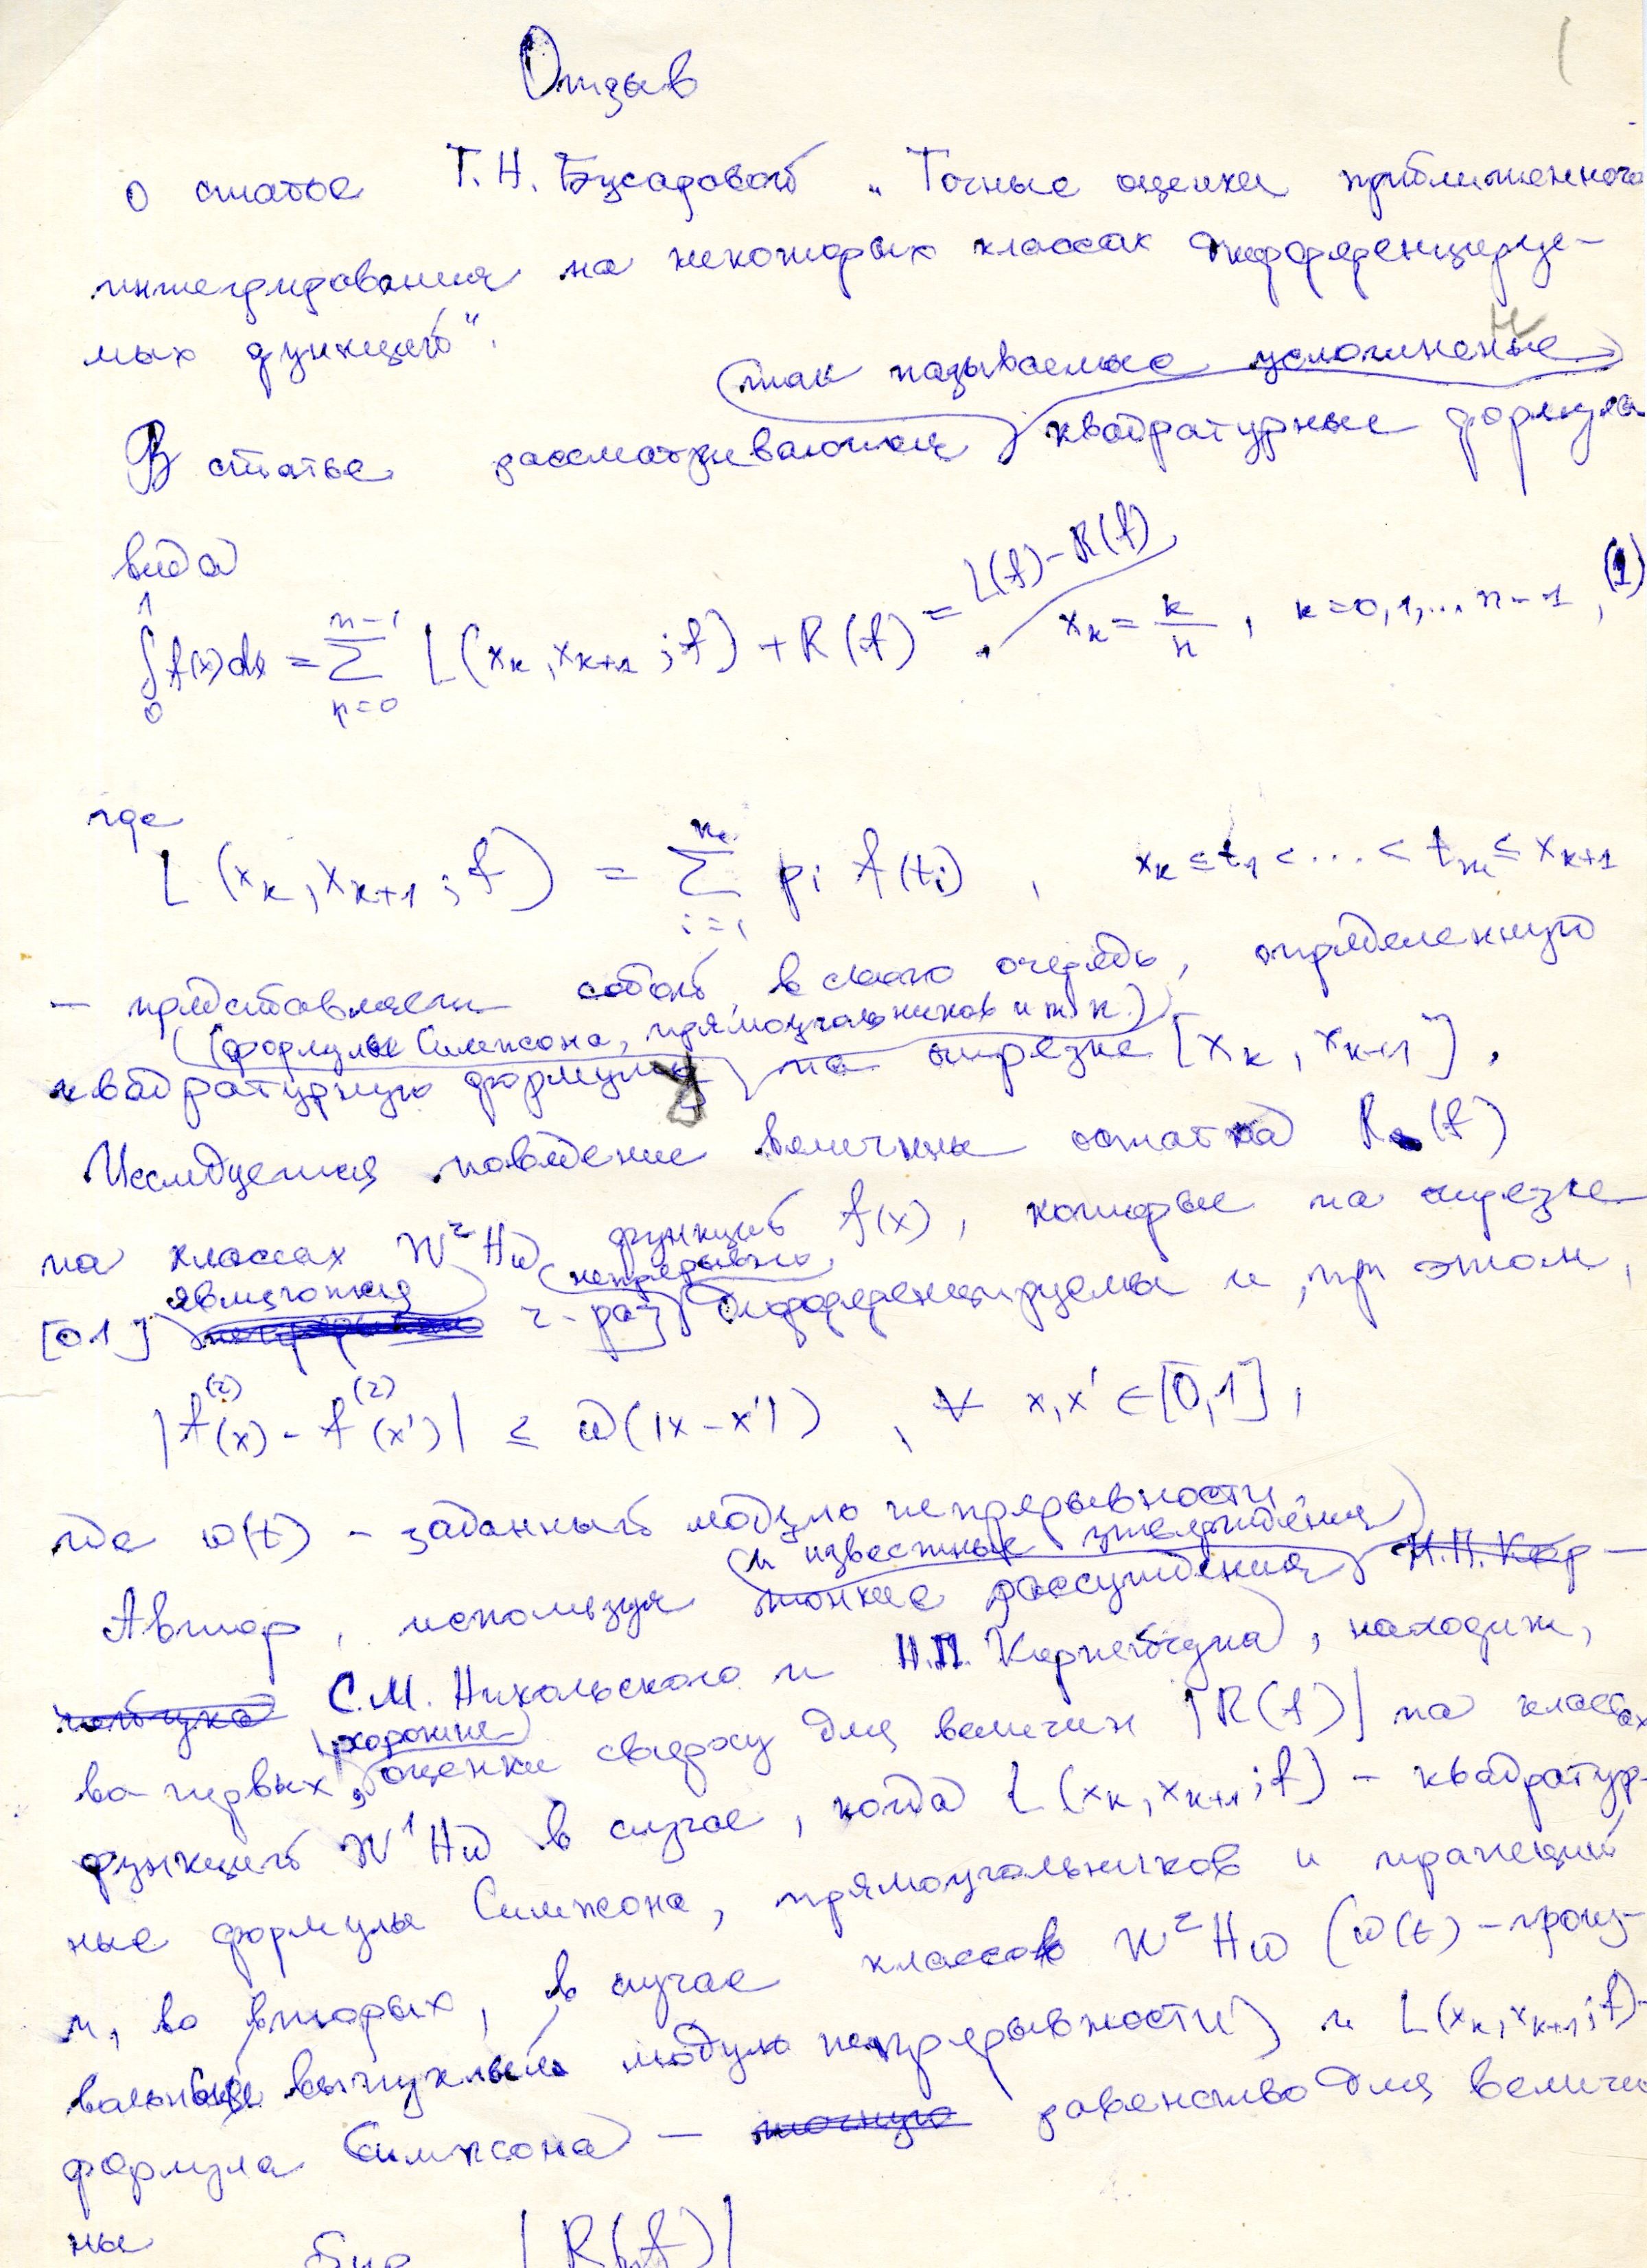 Отзыв
о статье Т.Н. Бусаровой „Точные оценки приближенного
интегрирования на некоторых классах дифференцируе-
мых функций“.
так называемые усложненные
В статье рассматриваются квадратурные формулы
вида
∫₀¹ f(x)dx = Σ_{k=0}^{n-1} L(x_k, x_{k+1}; f) + R(f) = L(f) - R(f), x_k = k/n, k=0,1,... n-1, (1)
где
L(x_k, x_{k+1}; f) = Σ_{i=1}^{m} p_i f(t_i), x_k ≤ t_1 < ... < t_m ≤ x_{k+1}
– представляет собой, в свою очередь, определенную
(формулы Симпсона, прямоугольников и т.п.)
квадратурную формулу на отрезке [x_k, x_{k+1}].
Исследуется поведение величины остатка R(f)
на классах W^r H_ω функций f(x), которые на отрезке
являются непрерывно
[0 1] r-раз дифференцируемы и, при этом,
|f^{(r)}(x) - f^{(r)}(x')| ≤ ω(|x-x'|), ∀ x,x' ∈ [0,1],
где ω(t) – заданный модуль непрерывности.
и известные утверждения
Автор, используя тонкие рассуждения Н.П. Кор-
нейчука С.М. Никольского и Н.П. Корнейчука, находит,
хорошие
во-первых, оценки сверху для величин |R(f)| на классах
функций W^1 H_ω в случае, когда L(x_k, x_{k+1}; f) – квадратур-
ные формулы Симпсона, прямоугольников и трапеций
и, во вторых, в случае классов W^r H_ω (ω(t) – произ-
вольный выпуклый модуль непрерывности) и L(x_k, x_{k+1}; f) –
формула Симпсона – точную равенство для величи-
ны sup |R(f)|